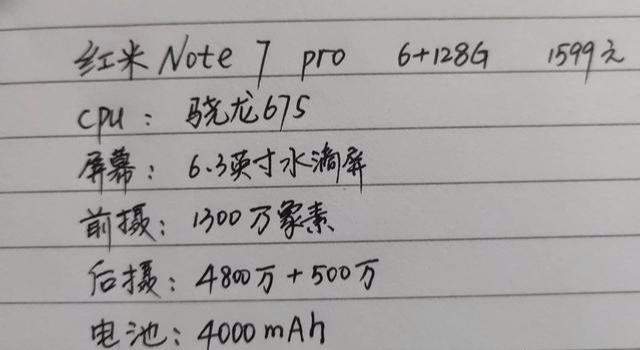 红米Note 7 pro 6+128G 1599元
CPU：骁龙675
屏幕：6.3英寸水滴屏
前摄：1300万象素
后摄：4800万+500万
电池：4000mAh